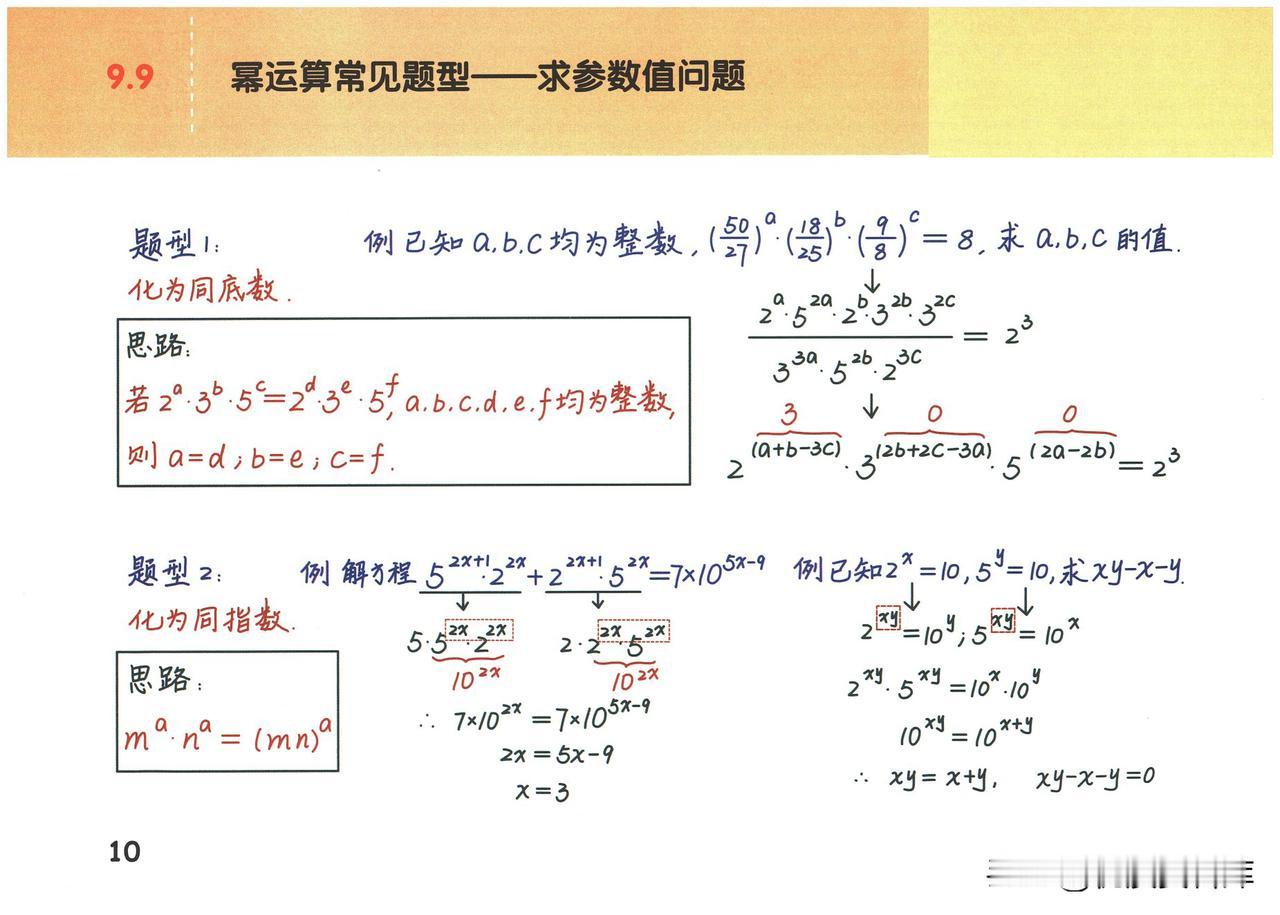 9.9 幂运算常见题型——求参数值问题
题型1:
化为同底数.
例 已知 a.b.c 均为整数, (50/27)^a·(18/25)^b·(9/8)^c = 8, 求 a.b.c 的值.
↓
(2^a·5^2a·2^b·3^2b·3^2c)/(3^3a·5^2b·2^3c) = 2^3
↓
3 0 0
2^(a+b-3c)·3^(2b+2c-3a)·5^(2a-2b) = 2^3
思路:
若 2^a·3^b·5^c=2^d·3^e·5^f, a.b.c.d.e.f 均为整数,
则 a=d; b=e; c=f.
题型2:
化为同指数.
思路:
m^a·n^a = (mn)^a
例 解方程 5^2x+1·2^2x + 2^2x+1·5^2x = 7×10^5x-9
↓ ↓
5·5^2x·2^2x 2·2^2x·5^2x
10^2x 10^2x
∴ 7×10^2x = 7×10^5x-9
2x = 5x-9
x = 3
例 已知 2^x = 10, 5^y = 10, 求 xy-x-y.
↓ ↓
2^xy = 10^y; 5^xy = 10^x
2^xy·5^xy = 10^x·10^y
10^xy = 10^x+y
∴ xy = x+y, xy-x-y=0
10